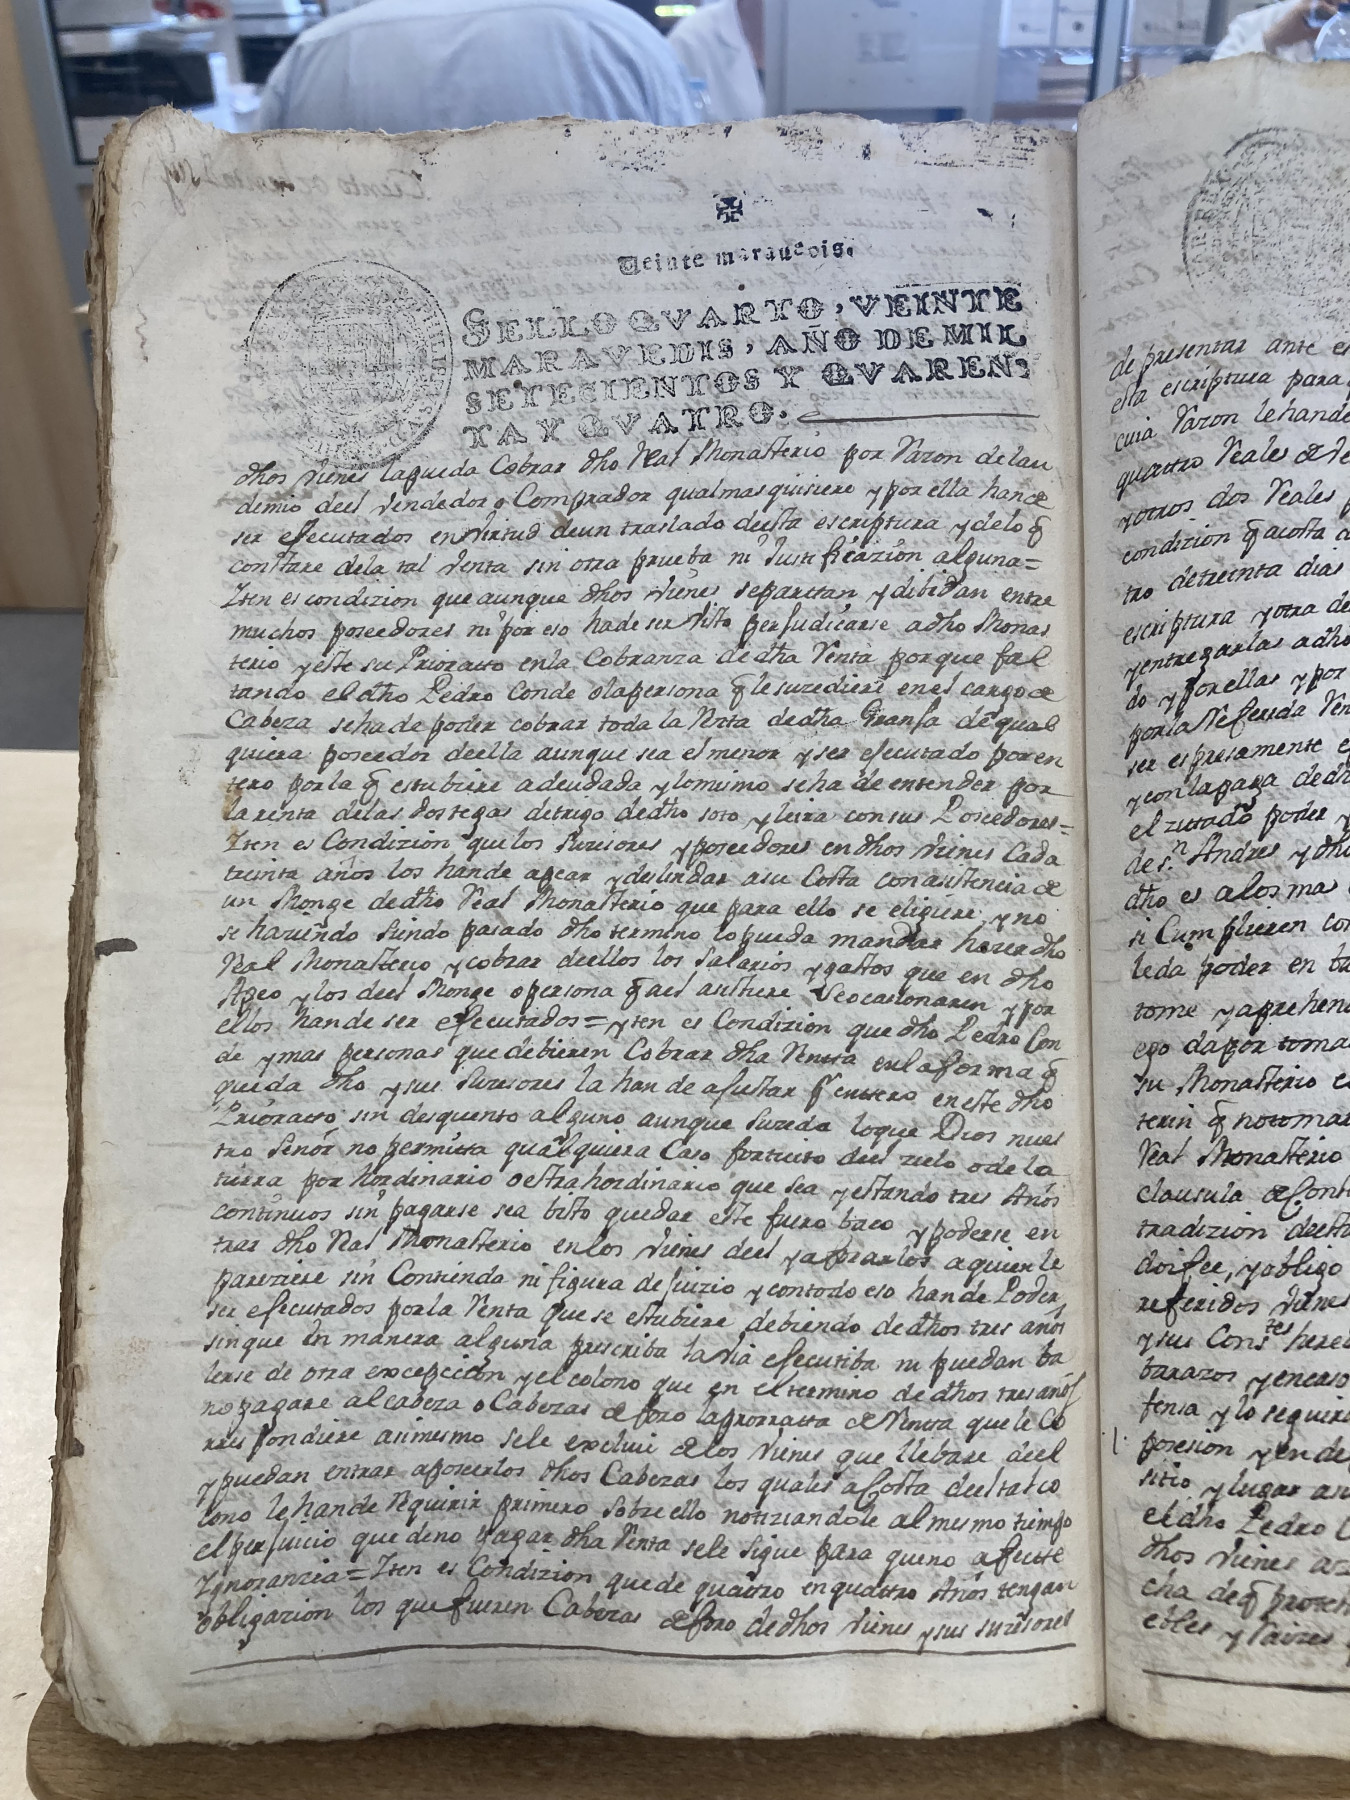 Veinte maravedis.
SELLO QVARTO, VEINTE
MARAVEDIS, AÑO DE MIL
SETECIENTOS Y QVAREN-
TA Y QVATRO.
dhos vienes la pueda Cobrar dho Real Monasterio por Razon de lau
demio deel vendedor o Comprador qual mas quisiere y por ella han de
ser efecutados en virtud de un traslado deesta escriptura y de lo q̃
constare de la tal Venta sin otra prueba ni Justificazión alguna=
Iten es condizion que aunque dhos vienes se partan y dibidan entre
muchos poseedores ni por eso hade ser visto perjudicarse a dho Monas
terio y este su Priorato en la Cobranza de dha Renta porque fal
tando el dho Pedro Conde o la persona q̃ le suzediere en el cargo de
Cabeza se ha de poder cobrar toda la Renta de dha Granja de qual
quiera poseedor deella aunque sea el menor y ser efecutado por en
tero por la q̃ estubiere adeudada y lo mismo se ha de entender por
la renta de las dos fegas de trigo de dho soto y leira con sus Poseedores=
Iten es Condizion que los Suzesores y poseedores en dhos vienes Cada
treinta años los hande apear y deslindar a su Costa con asistencia de
un Monge de dho Real Monasterio que para ello se eligiere, y no
se haziendo siendo pasado dho termino lo pueda mandar hazer dho
Real Monasterio y cobrar deellos los salarios y gastos que en dho
Apeo y los deel Monge o persona q̃ a el asistiere se ocasionaren y por
ellos hande ser efecutados= yten es Condizion que dho Pedro Con
de y mas personas que debieren Cobrar dha Renta en la forma q̃
queda dho y sus Suzesores la han de ajustar pr entero en este dho
Priorato sin desquento alguno aunque suzeda lo que Dios nues
tro Señor no permita qualquiera Caso fortuito deel zielo o de la
tierra por hordinario o estrahordinario que sea y estando tres Años
continuos sin pagarse sea bisto quedar este fuero baco y poderse en
trar dho Real Monasterio en los vienes deel y aforarlos a quien le
pareziere sin Contienda ni figura de juizio y con todo eso han de Poder
ser efecutados por la Renta que se estubiere debiendo de dhos tres años
sin que en manera alguna prescriba la via efecutiba ni puedan ba
lerse de otra excepcion y el colono que en el termino de dhos tres años
no pagare al cabeza o Cabezas de foro la prorrata de Renta que le Co
rrespondiere asimesmo se le excluie de los vienes que llebare deel
y puedan entrar a poseerlos dhos Cabezas los quales a Costa deel tal co
lono le hande Requirir primero sobre ello notiziandole al mesmo tiempo
el perjuicio que de no pagar dha Renta se le sigue para que no afecte
Ignoranzia= Iten es Condizion que de quatro en quatro Años tengan
obligazion los que fueren Cabezas de foro de dhos vienes y sus suzesores
de presentar ante
esta escriptura para
cuia Razon le hande
quatro Reales de
y otros dos Reales
condizion q̃ a costa
tro de treinta dias
escriptura y otra
y entregarlas a dho
do y por ellas y por
por la Referida
ser espresamente
y con la paga de
el zitado poder
de Sn Andres y
dho es a los mas
si Cumplieren
le da poder en
tome y aprehen
ego da por
su Monasterio
terin q̃ no
Real Monasterio
clausula de
tradizion
doi fee, y obligo
referidos vienes
y sus
barazos y
fensa y lo
posesion y en
sitio y lugar
el dho Pedro
dhos vienes
cha de q̃
ebles y Raizes